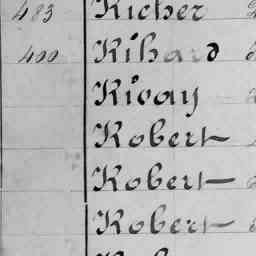 483 Richer
400 Rihard
Rivay
Robert
Robert
Robert